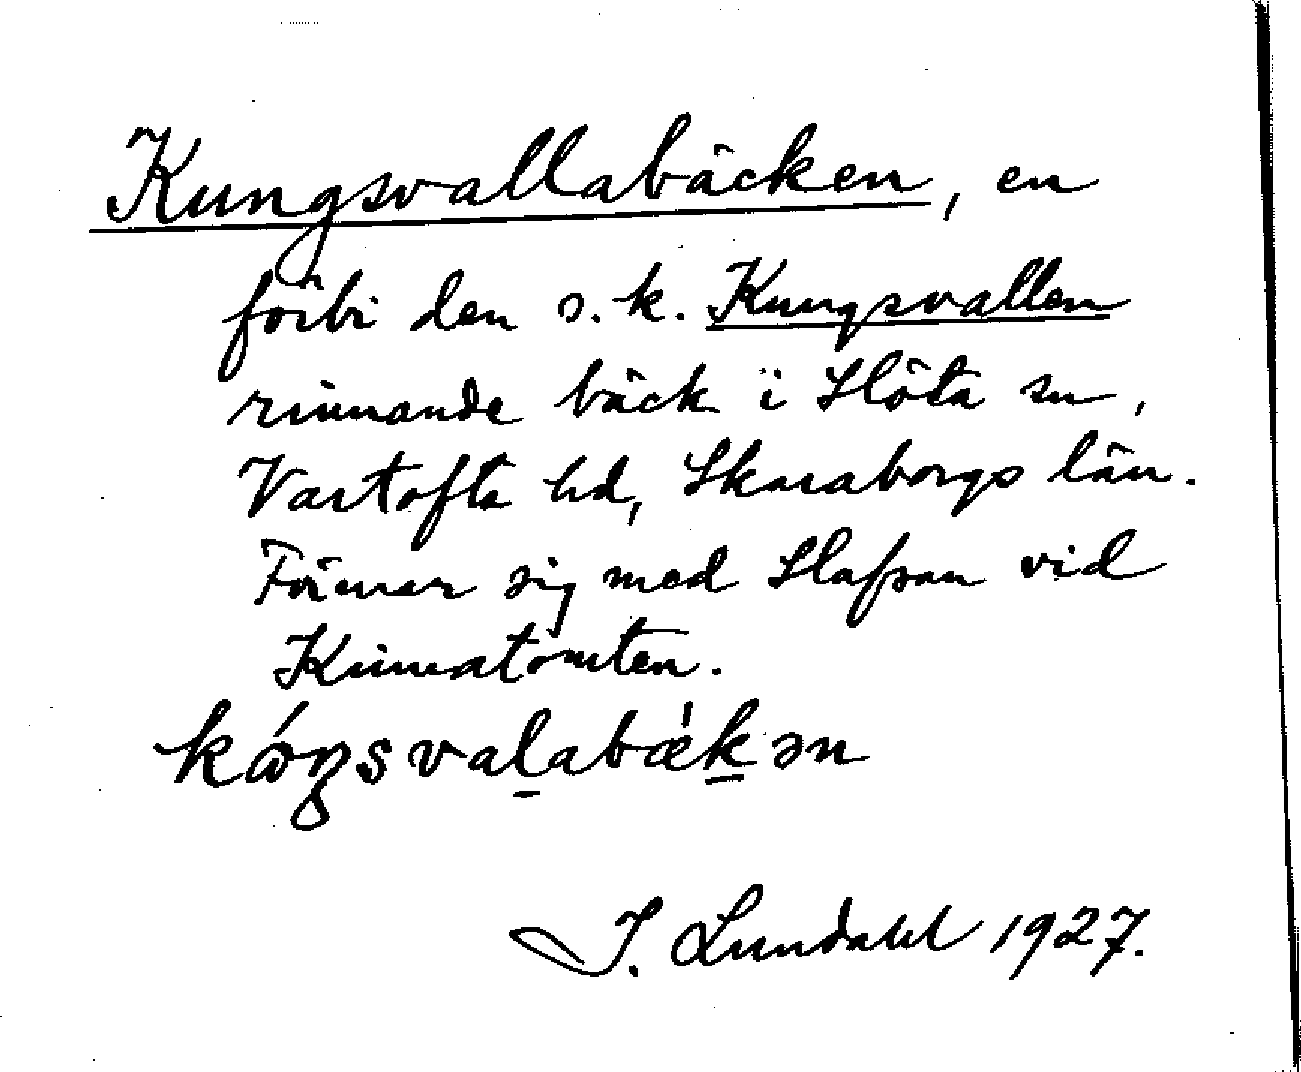 Kungsvallabäcken, en
förbi den s.k. Kungsvallen
rinnande bäck i Slöta sn,
Vartofta hd, Skaraborgs län.
Förenar sig med Slafsan vid
tomten.
kóŋsvalabǽkən
J. Lundahl 1927.